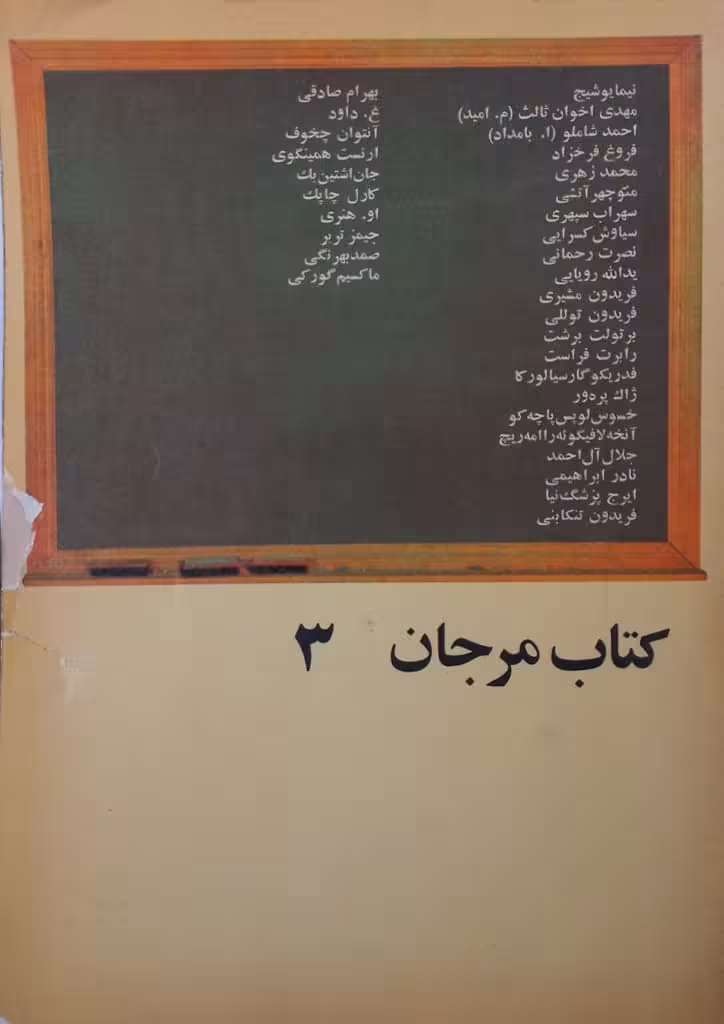 نیمایوشیج
مهدی اخوان ثالث (م. امید)
احمد شاملو (ا. بامداد)
فروغ فرخزاد
محمد زهری
منوچهرآتشی
سهراب سپهری
سیاوش کسرایی
نصرت رحمانی
یدالله رویایی
فریدون مشیری
فریدون توللی
برتولت برشت
رابرت فراست
فدریکو گارسیالورکا
ژاك پره‌ور
خسوس‌لوپس‌پاچه‌کو
آنخه‌لافیگوئه‌راآمه‌ریچ
جلال آل‌احمد
نادر ابراهیمی
ایرج پزشگ‌نیا
فریدون تنکابنی
بهرام صادقی
غ. داود
آنتوان چخوف
ارنست همینگوی
جان‌اشتین‌بك
کارل چاپك
او. هنری
جیمز تربر
صمدبهرنگی
ماکسیم‌گورکی
کتاب مرجان ۳